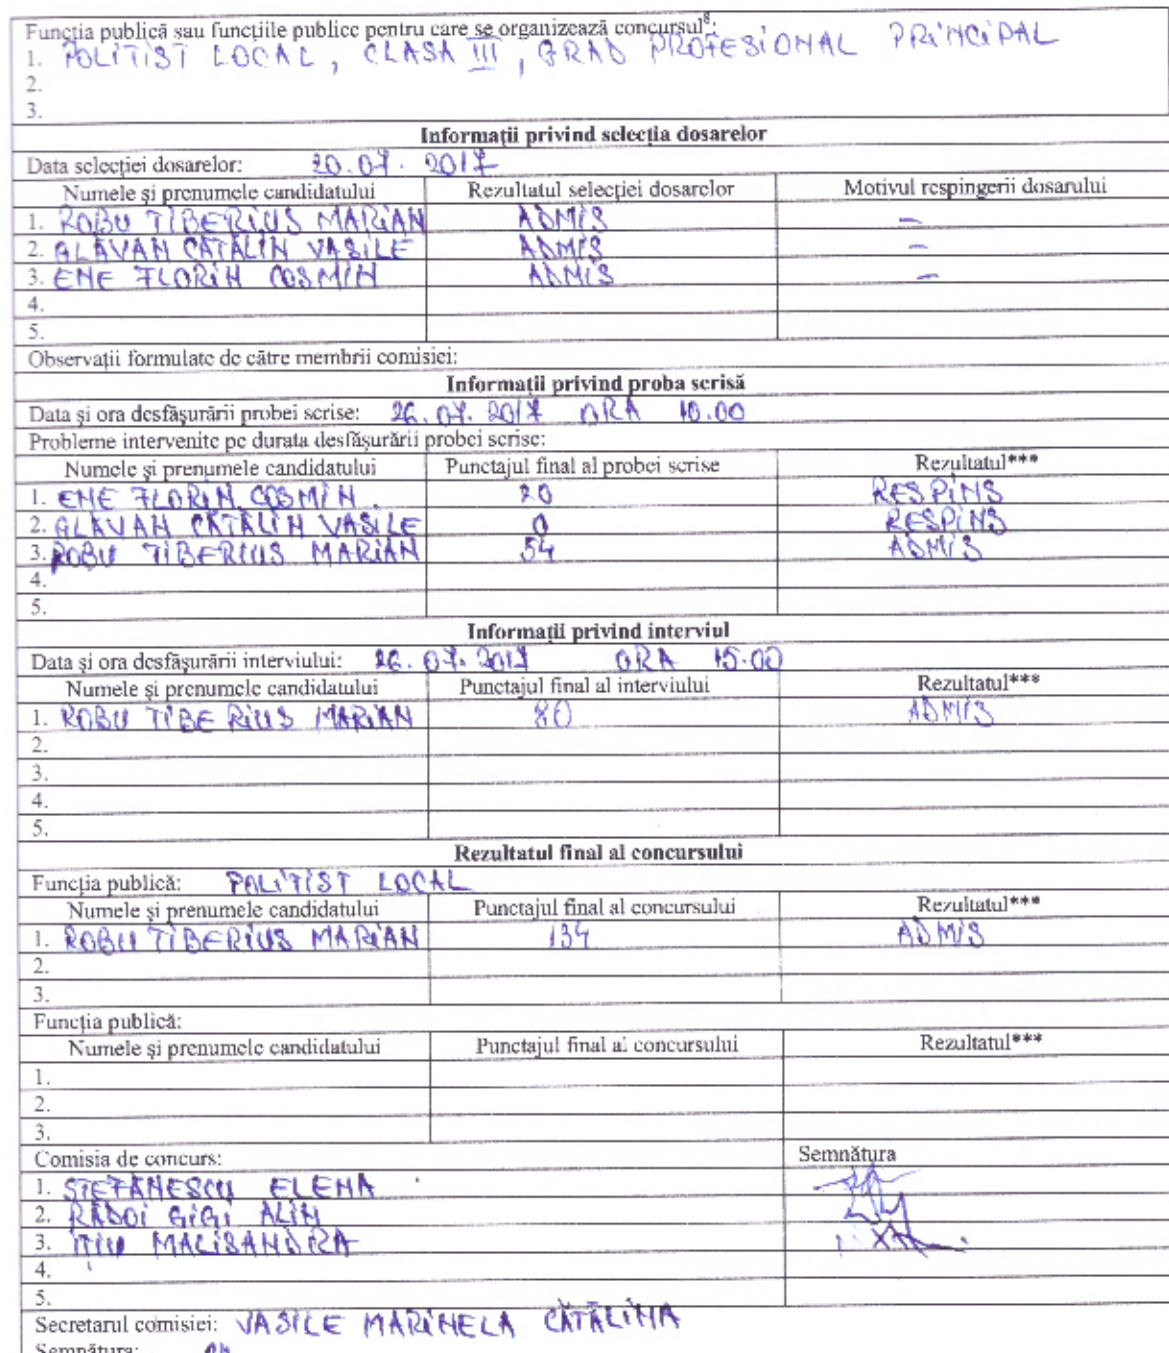 Funcția publică sau funcțiile publice pentru care se organizează concursul⁸:
1. POLITIST LOCAL, CLASA III, GRAD PROFESIONAL PRINCIPAL
2.
3.
Informații privind selecția dosarelor
Data selecției dosarelor: 20.07.2017
Numele și prenumele candidatului Rezultatul selecției dosarelor Motivul respingerii dosarului
1. ROBU TIBERIUS MARIAN ADMIS –
2. GLĂVAN CĂTĂLIN VASILE ADMIS –
3. ENE FLORIN COSMIN ADMIS –
4.
5.
Observații formulate de către membrii comisiei:
Informații privind proba scrisă
Data și ora desfășurării probei scrise: 26.07.2017 ORA 10.00
Probleme intervenite pe durata desfășurării probei scrise:
Numele și prenumele candidatului Punctajul final al probei scrise Rezultatul***
1. ENE FLORIN COSMIN 20 RESPINS
2. GLĂVAN CĂTĂLIN VASILE 0 RESPINS
3. ROBU TIBERIUS MARIAN 54 ADMIS
4.
5.
Informații privind interviul
Data și ora desfășurării interviului: 26.07.2017 ORA 15.00
Numele și prenumele candidatului Punctajul final al interviului Rezultatul***
1. ROBU TIBERIUS MARIAN 80 ADMIS
2.
3.
4.
5.
Rezultatul final al concursului
Funcția publică: POLITIST LOCAL
Numele și prenumele candidatului Punctajul final al concursului Rezultatul***
1. ROBU TIBERIUS MARIAN 134 ADMIS
2.
3.
Funcția publică:
Numele și prenumele candidatului Punctajul final al concursului Rezultatul***
1.
2.
3.
Comisia de concurs: Semnătura
1. ȘTEFĂNESCU ELENA
2. RĂDOI GIGI ALIN
3. IȚIU MALISANDRA
4.
5.
Secretarul comisiei: VASILE MARINELA CĂTĂLINA
Semnătura: